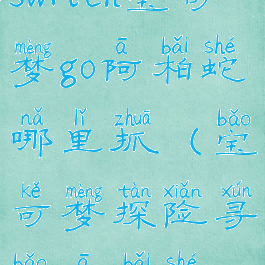 switch宝可
mèng ā bǎi shé
梦go阿柏蛇
nǎ lǐ zhuā bǎo
哪里抓(宝
kě mèng tàn xiǎn xún
可梦探险寻
bǎo ā bǎi shé